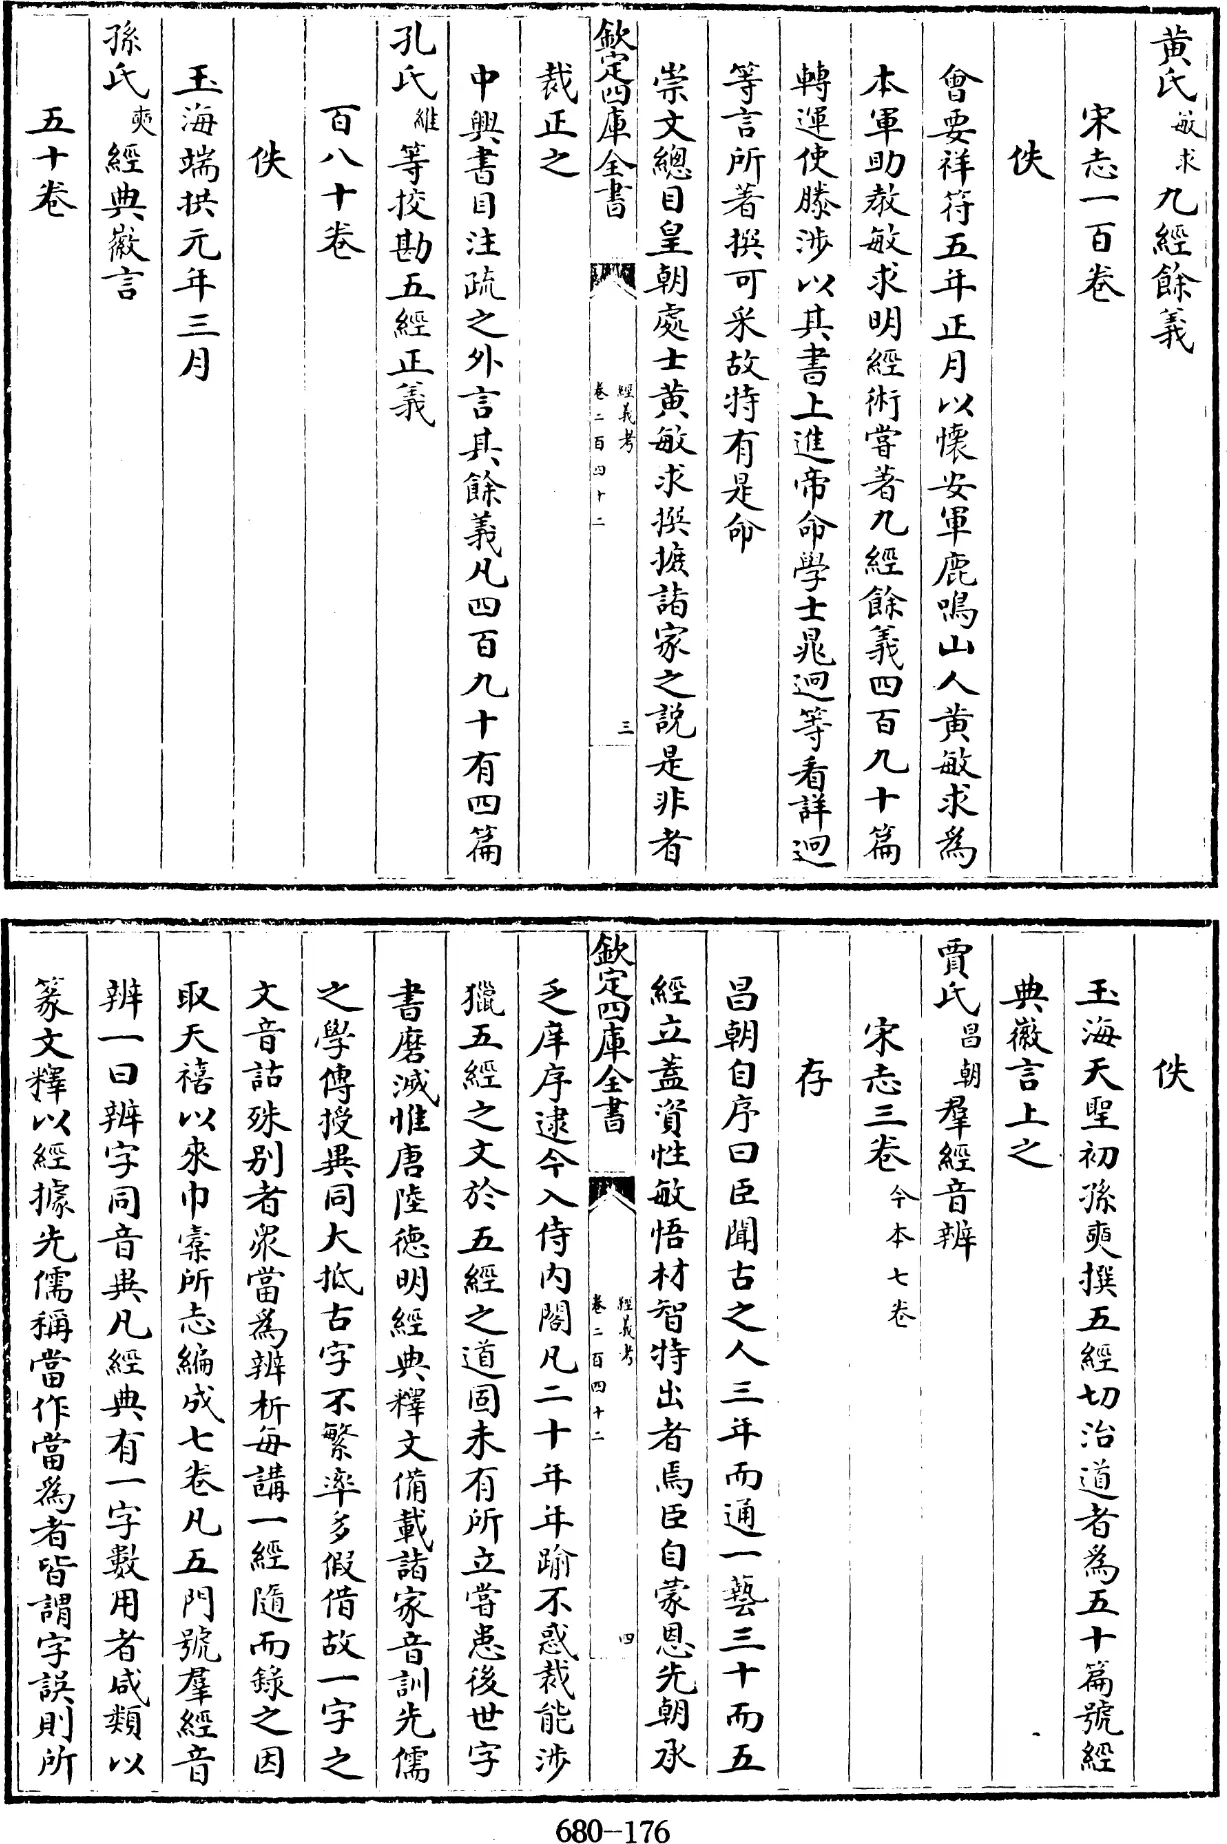 黄氏敏求九經餘義
宋志一百卷
佚
㑹要祥符五年正月以懐安軍鹿鳴山人黄敏求爲
本軍助敎敏求明經術嘗著九經餘義四百九十篇
轉運使滕涉以其書上進帝命學士晁迥等看詳迥
等言所著撰可采故特有是命
崇文總目皇朝處士黄敏求撰摭諸家之說是非者
欽定四庫全書
經義考
卷二百四十二
三
裁正之
中興書目注疏之外言其餘義凡四百九十有四篇
孔氏維等挍勘五經正義
百八十卷
佚
玉海端拱元年三月
孫氏奭經典徽言
五十卷
佚
玉海天聖初孫奭撰五經切治道者爲五十篇號經
典徽言上之
賈氏昌朝羣經音辨
宋志三卷今本七卷
存
昌朝自序曰臣聞古之人三年而通一藝三十而五
經立蓋資性敏悟材智特出者焉臣自蒙恩先朝承
欽定四庫全書
經義考
卷二百四十二
四
乏庠序逮今入侍内閣凡二十年年踰不惑裁能涉
獵五經之文於五經之道固未有所立嘗患後世字
書磨滅惟唐陸德明經典釋文備載諸家音訓先儒
之學傳授異同大抵古字不繁率多假借故一字之
文音詁殊别者衆當爲辨析每講一經隨而錄之因
取天禧以來巾橐所志編成七卷凡五門號羣經音
辨一曰辨字同音異凡經典有一字數用者咸類以
篆文釋以經據先儒稱當作當爲者皆謂字誤則所
680-176